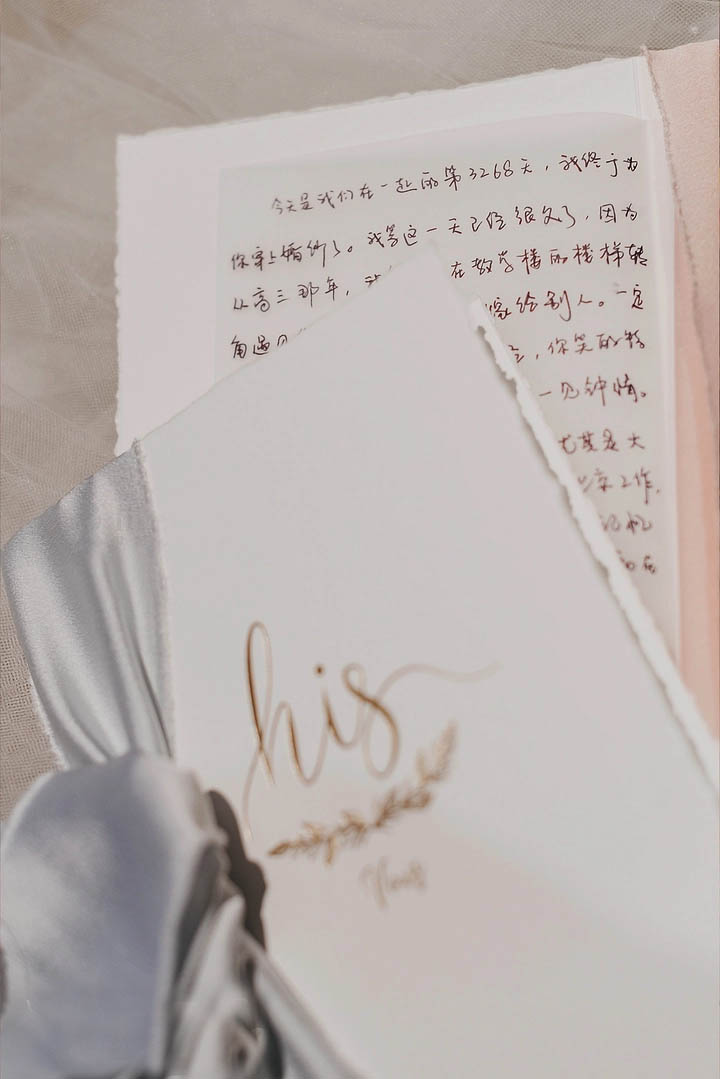 今天是我们在一起的第3268天，我终于为
你穿上婚纱了。我等这一天已经很久了，因为
从高三那年，在教学楼的楼梯转
角遇见 嫁给别人。一定
，你笑的特
一见钟情。
尤其是大
京工作，
记忆
的在
his
Vows